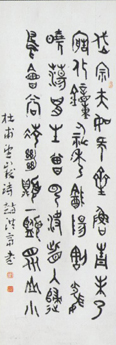 岱宗夫如何齊魯青未了
造化鍾神秀陰陽割昏
曉蕩胸生曾雲決眥入歸
鳥會當凌絕頂一覽眾山小
杜甫望嶽詩